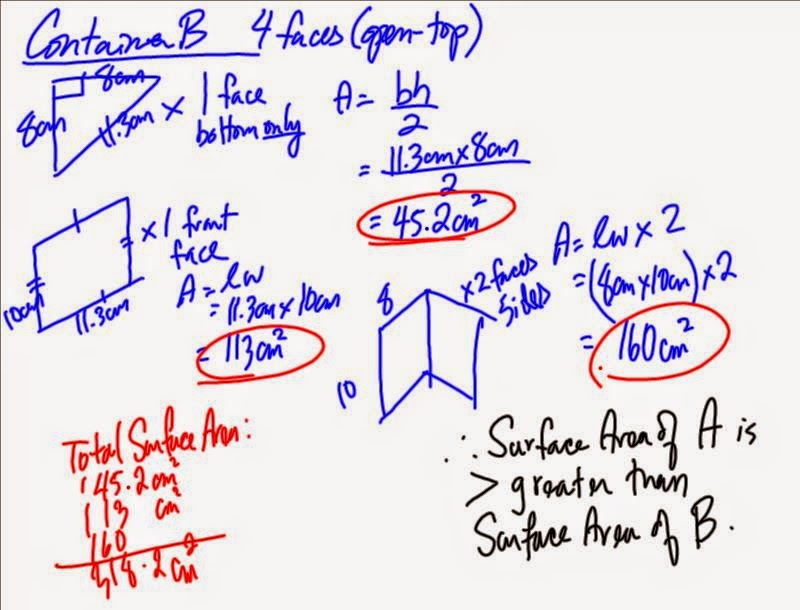 Container B 4 faces (open-top)
8cm
8cm
11.3cm
× 1 face
bottom only
A = bh
2
= 11.3cm × 8cm
2
= 45.2cm²
10cm
11.3cm
× 1 front
face
A = lw
= 11.3cm × 10cm
= 113cm²
8
10
×2 faces
sides
A = lw × 2
= (8cm × 10cm) × 2
= 160cm²
Total Surface Area:
45.2cm²
113 cm²
160
318.2cm²
∴ Surface Area of A is
> greater than
Surface Area of B.